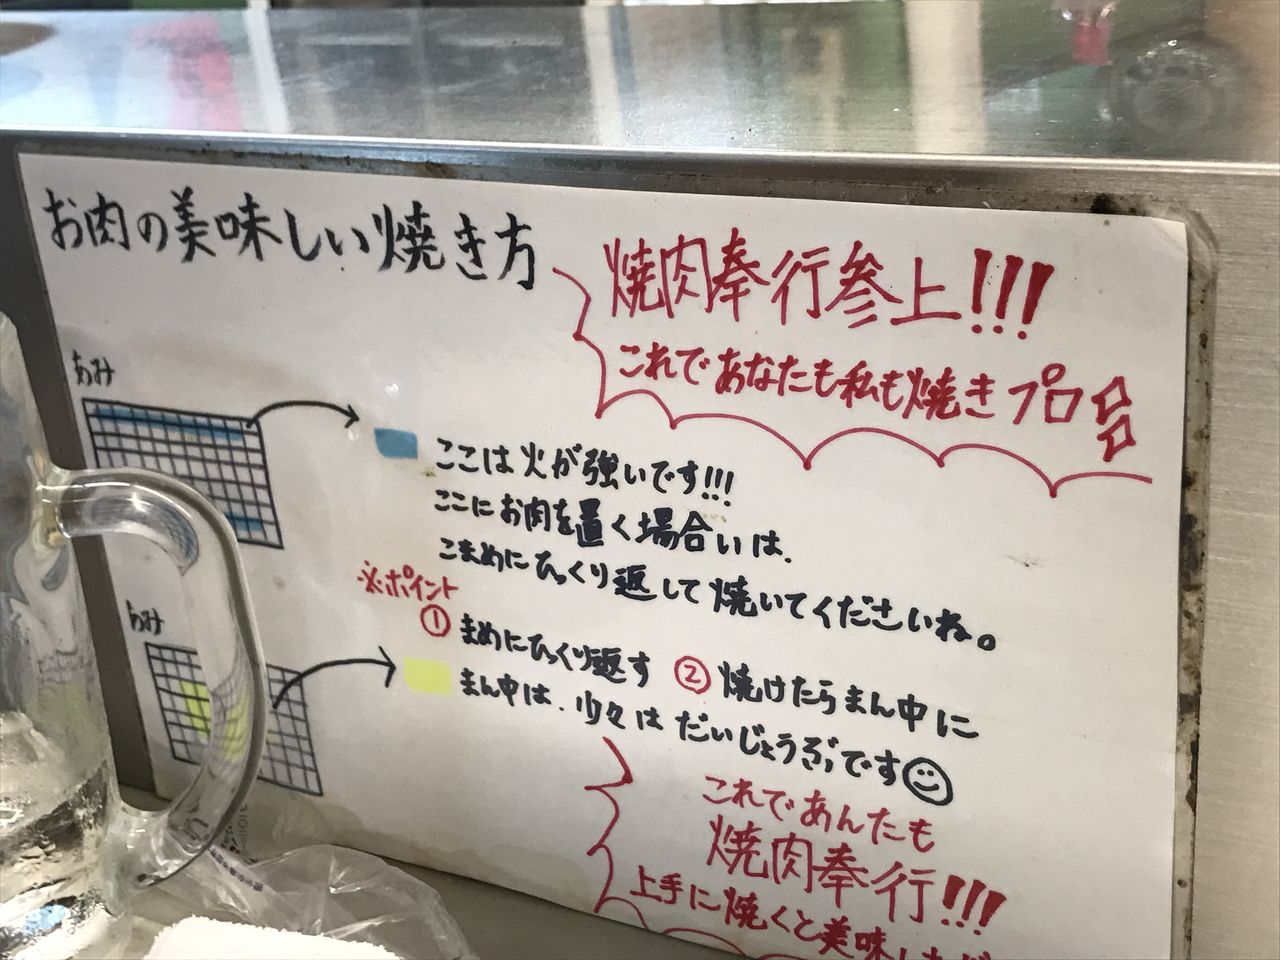 お肉の美味しい焼き方
焼肉奉行参上!!!
これであなたも私も焼きプロ
あみ
ここは火が強いです!!!
ここにお肉を置く場合いは、
こまめにひっくり返して焼いてくださいね。
※ポイント
① まめにひっくり返す ② 焼けたらまん中に
あみ
まん中は、少々はだいじょうぶです
これであんたも
焼肉奉行!!!
上手に焼くと美味し